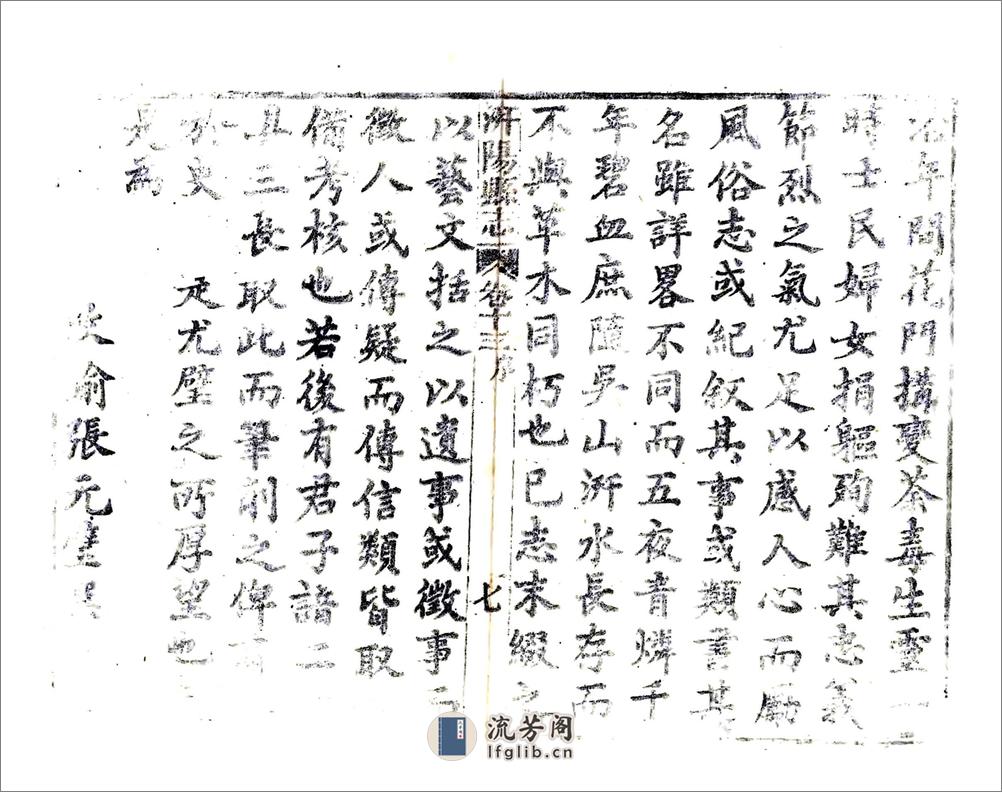 年間花門搆變荼毒生靈一
時士民婦女捐軀殉難其忠義
節烈之氣尤足以感人心而勵
風俗志或紀叙其事或類書其
名雖詳畧不同而五夜青燐千
年碧血庶隨吳山汧水長存而
不與草木同朽也已志末綴之
汧陽縣志 卷十三序 七
以藝文括之以遺事或徵事
徵人或傳疑而傳信類皆取
備考核也若後有君子諳二
丑三長取此而筆削之俾
於史 元璧之所厚望也
是為
張元
流芳阁
lfglib.cn